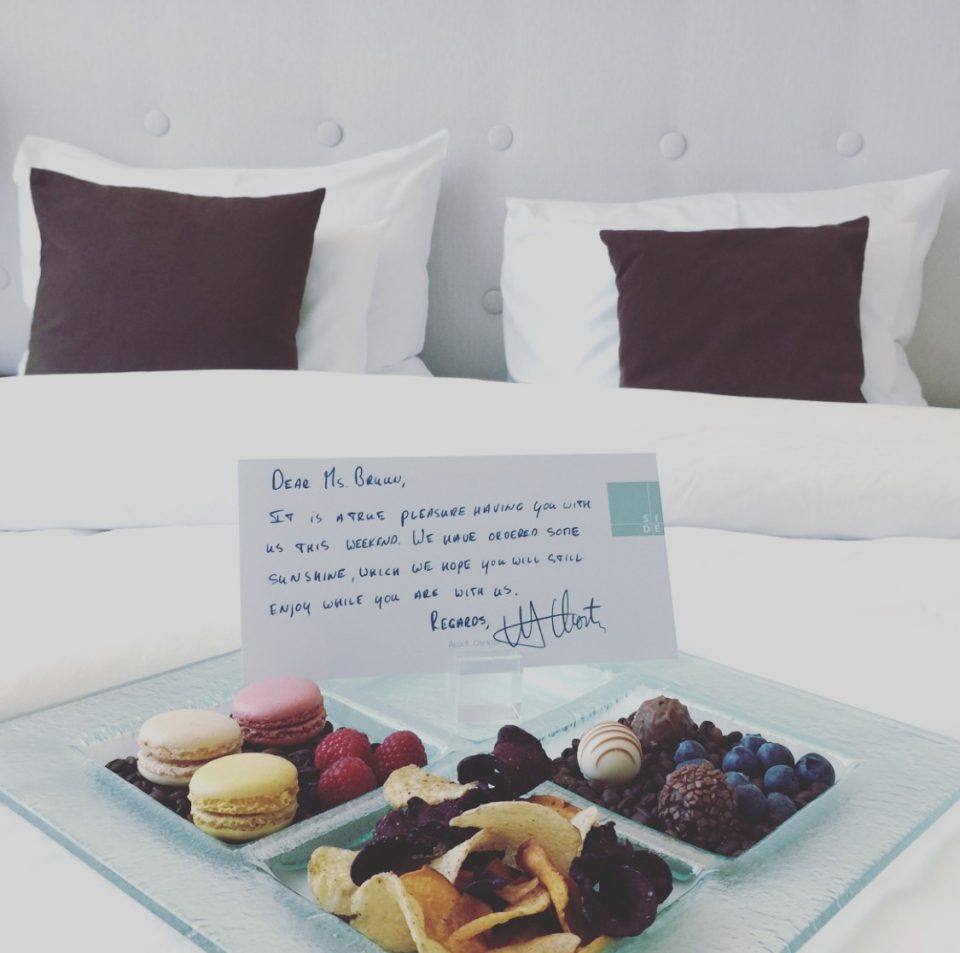 DEAR MS. BRUUN,
IT IS A TRUE PLEASURE HAVING YOU WITH
US THIS WEEKEND. WE HAVE ORDERED SOME
SUNSHINE, WHICH WE HOPE YOU WILL STILL
ENJOY WHILE YOU ARE WITH US.
REGARDS,
SI
DE